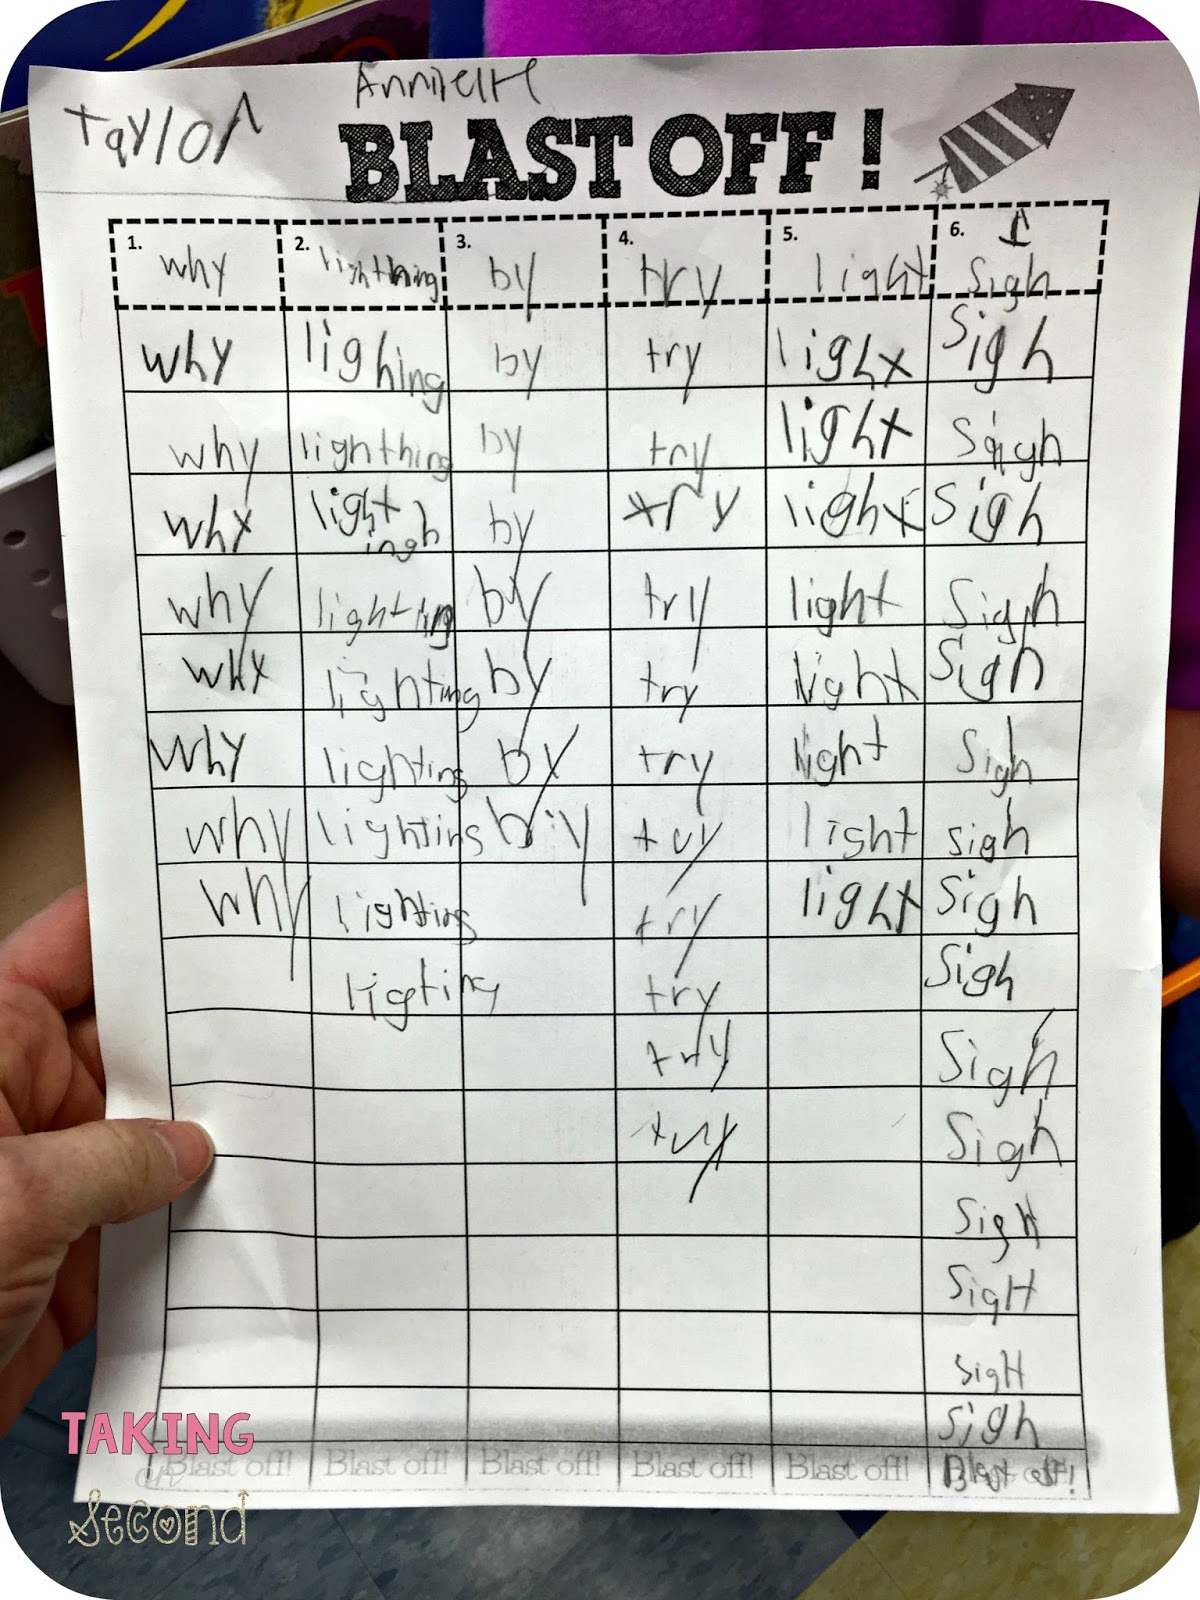 Taylor Annie H
BLAST OFF!
1. why 2. lighthing 3. by 4. try 5. light 6. sigh
why lighing by try light sigh
why lighthing by try light sigh
why light ingh by try light sigh
why lighting by try light sigh
why lighting by try light sigh
why lighting by try light sigh
why lighting by try light sigh
why lighting try light sigh
lighting try sigh
try sigh
try sigh
sigh
sigH
sigH
sigh
Blast off! Blast off! Blast off! Blast off! Blast off! Blast off!
TAKING
on
Second